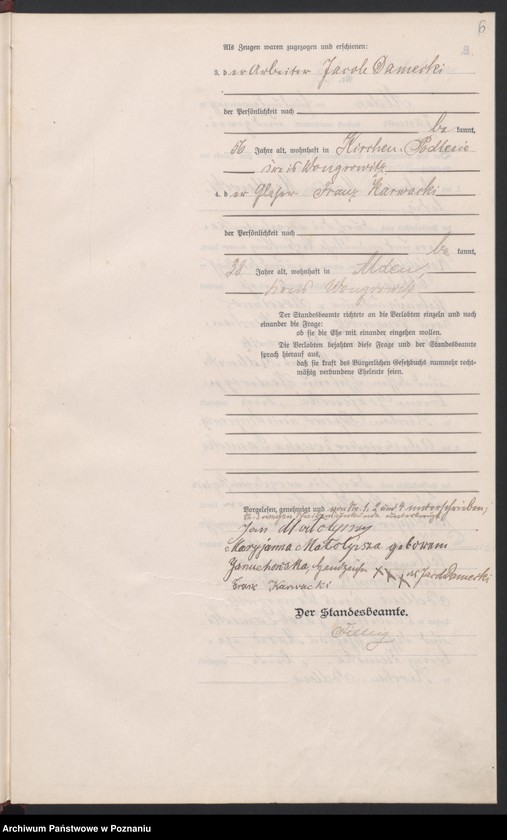 6
Als Zeugen waren zugezogen und erschienen:
3. der Arbeiter Jacob Damerki
der Persönlichkeit nach
be kannt,
56 Jahre alt, wohnhaft in Kirchen-Podlesie
Kreis Wongrowitz
4. der Glaser Franz Karwacki
der Persönlichkeit nach
be kannt,
28 Jahre alt, wohnhaft in
Kreis Wongrowitz
Der Standesbeamte richtete an die Verlobten einzeln und nach
einander die Frage:
ob sie die Ehe mit einander eingehen wollen.
Die Verlobten bejahten diese Frage und der Standesbeamte
sprach hierauf aus,
daß sie kraft des Bürgerlichen Gesetzbuchs nunmehr recht-
mäßig verbundene Eheleute seien.
Vorgelesen, genehmigt und von Nr. 1, 2 und 4 unterschrieben,
3 wegen
Jan
Maryjanna geborene
Januchowska, Handzeichen XXX des Jacob Damerki
Franz Karwacki
Der Standesbeamte.
Archiwum Państwowe w Poznaniu